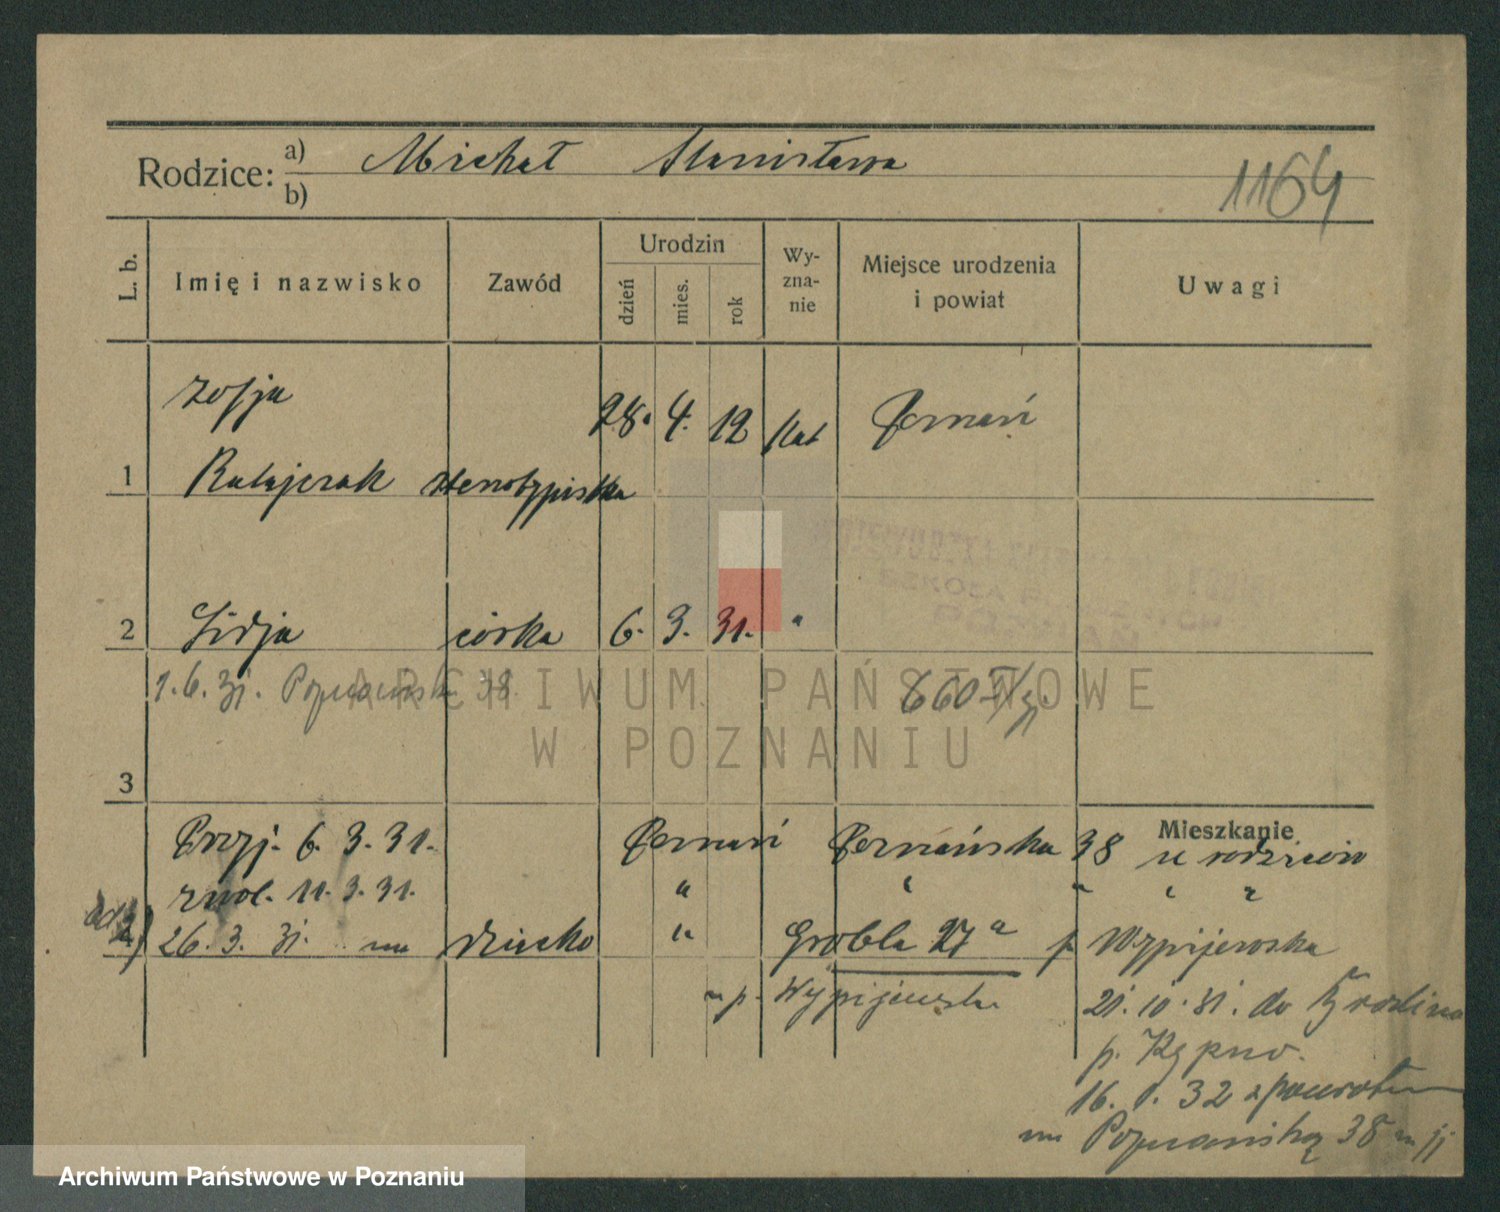 Rodzice: a) Michał Stanisława
b)
1164
L. b. Imię i nazwisko Zawód Urodzin dzień mies. rok Wy-zna-nie Miejsce urodzenia i powiat Uwagi
Zofja 28. 4. 12 kat Poznań
1 Ratajczak stenotypistka
2 Lidja córka 6. 3. 31. "
1. 6. 31. Poznańska 38
3
Mieszkanie
Przyj. 6. 3. 31. Poznań Poznańska 38 u rodziców
zwol. 11. 3. 31. " " " " "
26. 3. 31. na dziecko " Grobla 27a p Wypijewska
p. Wypijewska
21. 10. 31. do
p.
16. 1. 32 z powrotem
na Poznańską 38
ARCHIWUM PAŃSTWOWE
W POZNANIU
Archiwum Państwowe w Poznaniu